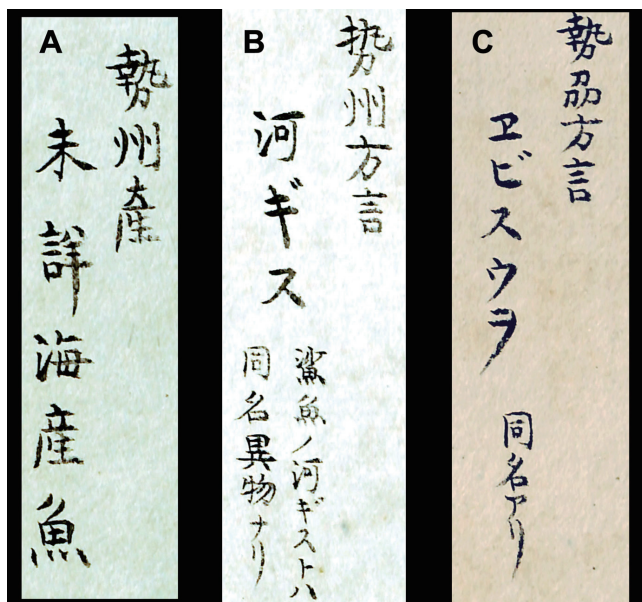 A
勢州產
未詳海産魚
B
势州方言
河ギス
鯊魚ノ河ギストハ
同名異物ナリ
C
勢刕方言
ヱビスウヲ
同名アリ